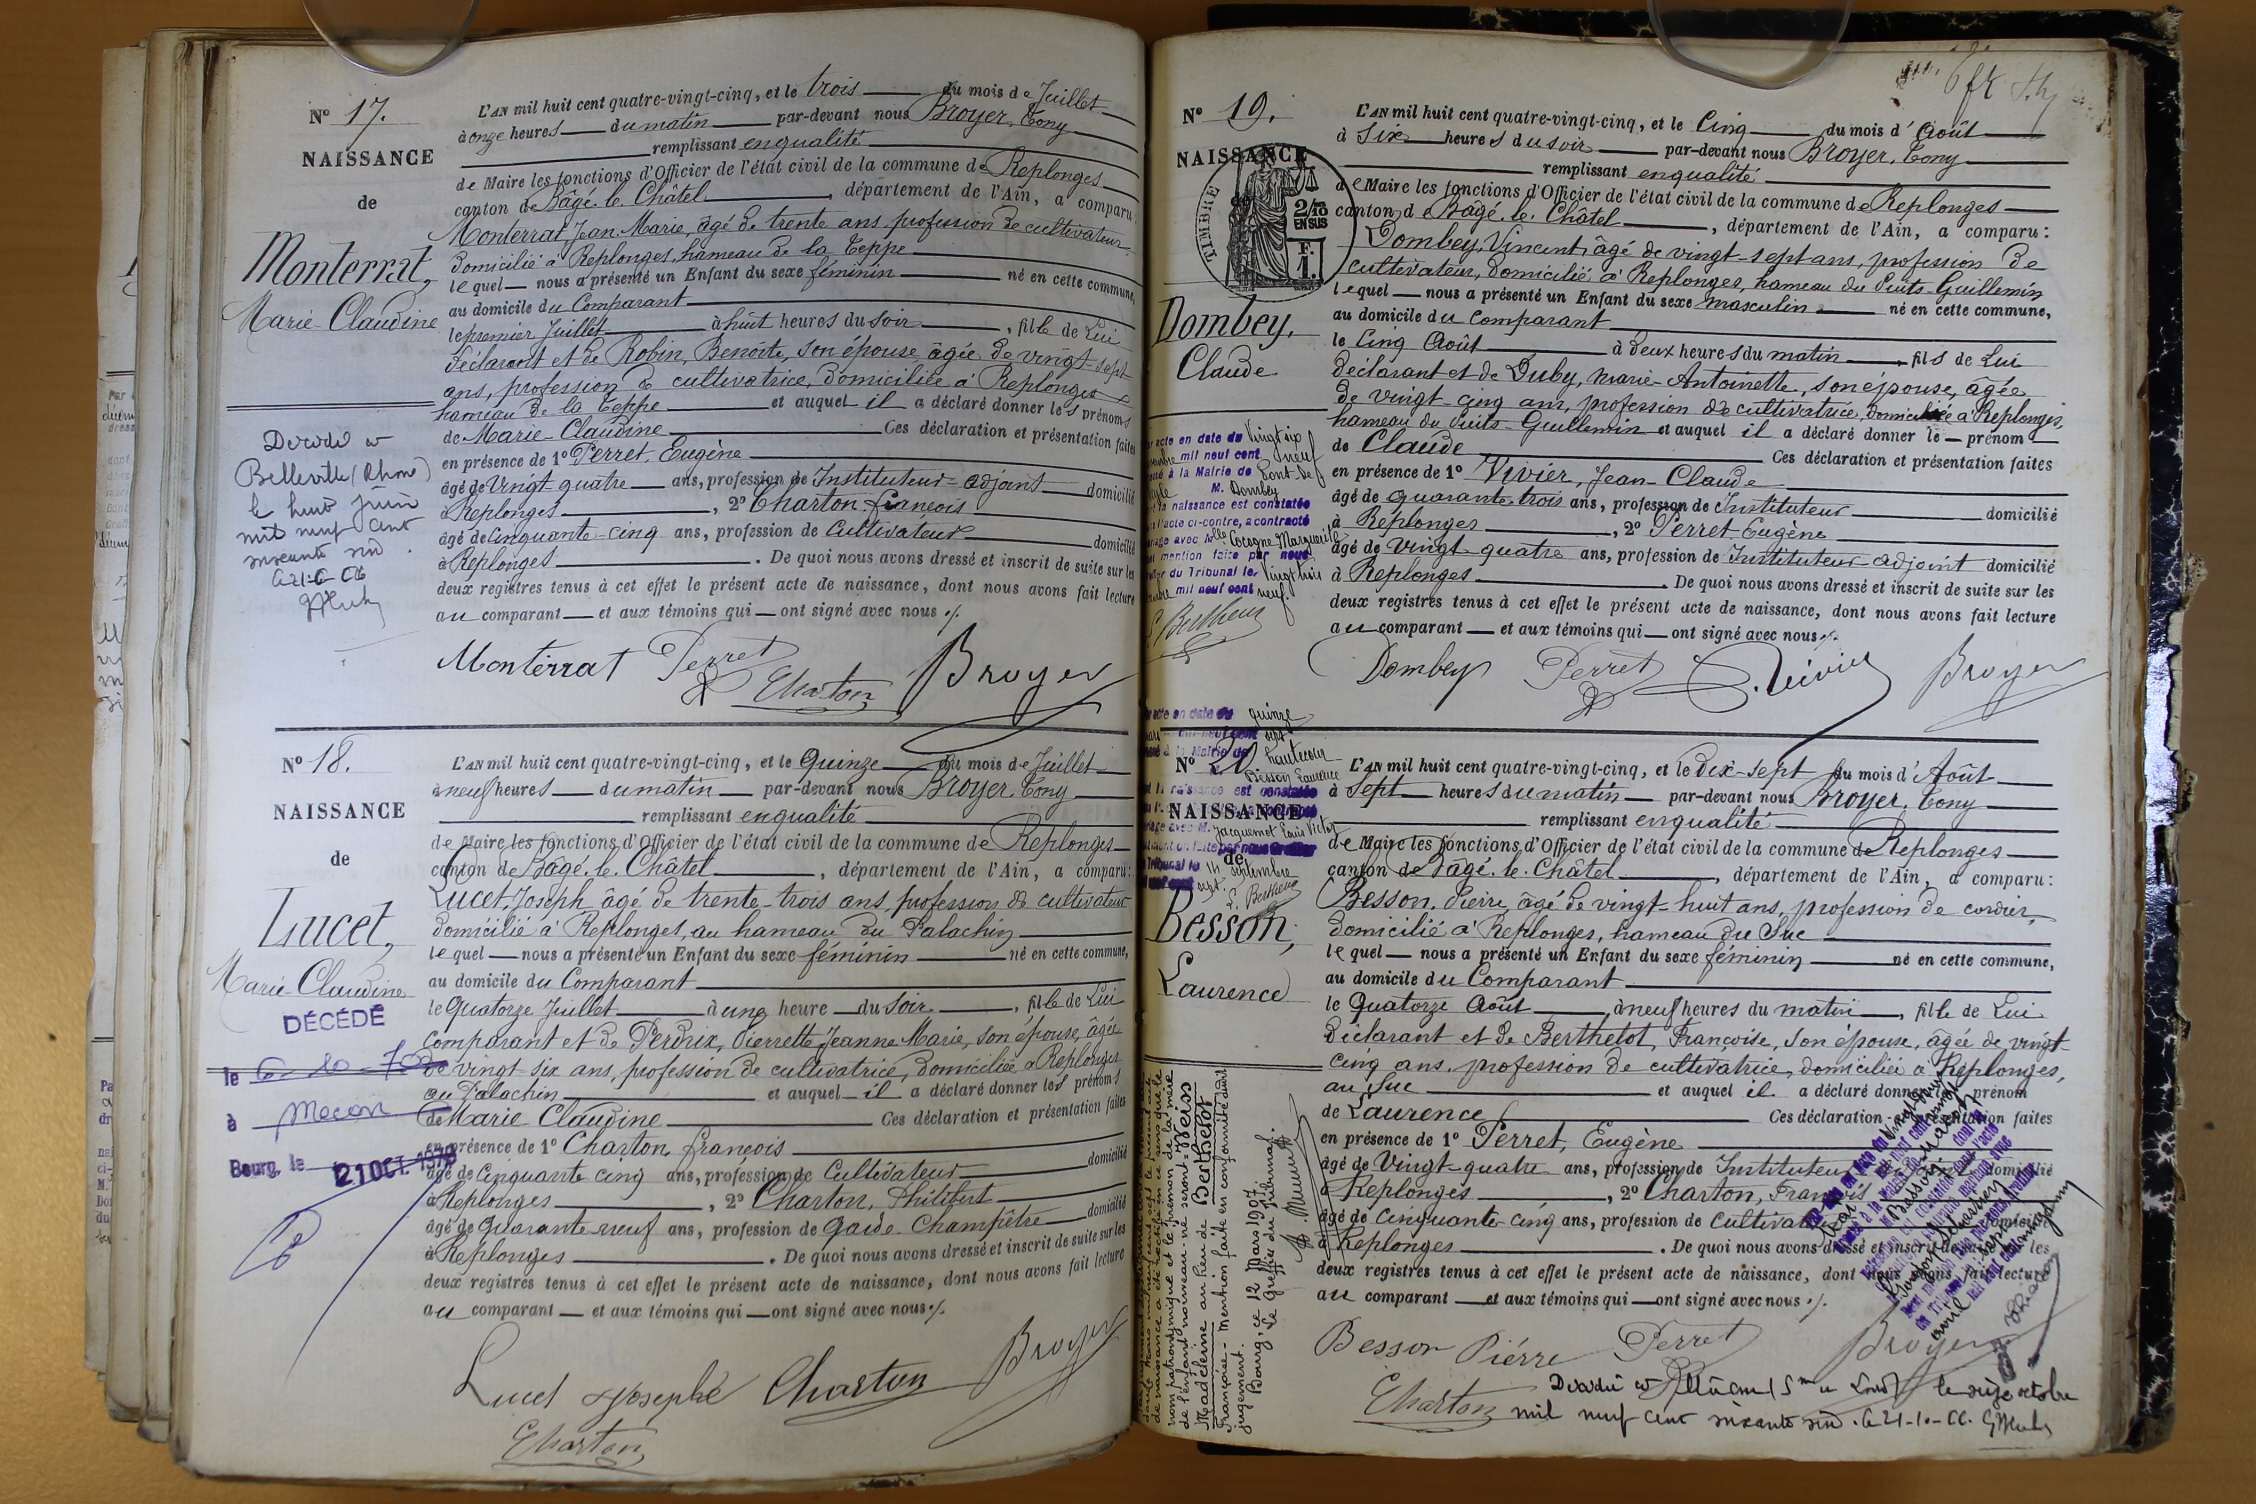 N° 17.
NAISSANCE
de
Monterrat,
Marie-Claudine
L'AN mil huit cent quatre-vingt-cinq, et le trois du mois de Juillet
à onze heures du matin par-devant nous Broyer, Tony
remplissant en qualité
de Maire les fonctions d'Officier de l'état civil de la commune de Replonges
canton de Bâgé-le-Châtel, département de l'Ain, a comparu
Monterrat Jean Marie, âgé de trente ans, profession de cultivateur
domicilié à Replonges, hameau de la Teppe
lequel nous a présenté un Enfant du sexe féminin né en cette commune,
au domicile du Comparant
le premier Juillet à huit heures du soir, fille de Lui
déclarant et de Robin, Benoîte, son épouse âgée de vingt-sept
ans, profession de cultivatrice, domiciliée à Replonges
hameau de la Teppe et auquel il a déclaré donner les prénoms
de Marie-Claudine Ces déclaration et présentation faites
en présence de 1° Perret, Eugène
âgé de Vingt quatre ans, profession de Instituteur-adjoint domicilié
à Replonges, 2° Charton François
âgé de Cinquante-cinq ans, profession de Cultivateur domicilié
à Replonges. De quoi nous avons dressé et inscrit de suite sur les
deux registres tenus à cet effet le présent acte de naissance, dont nous avons fait lecture
au comparant et aux témoins qui ont signé avec nous ./.
Monterrat Perret Charton Broyer
Décédé à
Belleville (Rhône)
le huit Juin
mil neuf cent
soixante six
N° 18.
NAISSANCE
de
Lucet,
Marie-Claudine
DÉCÉDÉ
le 6-10-70
à Macon
Bourg, le 21 OCT. 1970
L'AN mil huit cent quatre-vingt-cinq, et le Quinze du mois de Juillet
à neuf heures du matin par-devant nous Broyer, Tony
remplissant en qualité
de Maire les fonctions d'Officier de l'état civil de la commune de Replonges
canton de Bâgé-le-Châtel, département de l'Ain, a comparu:
Lucet, Joseph âgé de trente-trois ans, profession de cultivateur
domicilié à Replonges, au hameau du Palachin
lequel nous a présenté un Enfant du sexe féminin né en cette commune,
au domicile du Comparant
le Quatorze Juillet à une heure du soir, fille de Lui
Comparant et de Perdrix, Pierrette Jeanne Marie, son épouse, âgée
de vingt-six ans, profession de cultivatrice, domiciliée à Replonges
au Palachin et auquel il a déclaré donner les prénoms
de Marie-Claudine Ces déclaration et présentation faites
en présence de 1° Charton François
âgé de Cinquante cinq ans, profession de Cultivateur domicilié
à Replonges, 2° Charton, Philibert
âgé de Quarante-neuf ans, profession de Garde Champêtre domicilié
à Replonges. De quoi nous avons dressé et inscrit de suite sur les
deux registres tenus à cet effet le présent acte de naissance, dont nous avons fait lecture
au comparant et aux témoins qui ont signé avec nous ./.
Lucet Joseph Charton Broyer
Charton
N° 19.
NAISSANCE
de
TIMBRE
2/10
EN SUS
F.
1.
Dombey,
Claude
L'AN mil huit cent quatre-vingt-cinq, et le Cinq du mois d'Août
à Six heures du soir par-devant nous Broyer, Tony
remplissant en qualité
de Maire les fonctions d'Officier de l'état civil de la commune de Replonges
canton de Bâgé-le-Châtel, département de l'Ain, a comparu:
Dombey, Vincent, âgé de vingt-sept ans, profession de
cultivateur, domicilié à Replonges, hameau du Puits-Guillemin
lequel nous a présenté un Enfant du sexe masculin né en cette commune,
au domicile du comparant
le Cinq Août à deux heures du matin, fils de Lui
déclarant et de Duby, Marie-Antoinette, son épouse, âgée
de vingt-cinq ans, profession de cultivatrice, domiciliée à Replonges,
hameau du Puits-Guillemin et auquel il a déclaré donner le prénom
de Claude Ces déclaration et présentation faites
en présence de 1° Vivier, Jean-Claude
âgé de quarante-trois ans, profession de Instituteur domicilié
à Replonges, 2° Perret Eugène
âgé de Vingt-quatre ans, profession de Instituteur adjoint domicilié
à Replonges. De quoi nous avons dressé et inscrit de suite sur les
deux registres tenus à cet effet le présent acte de naissance, dont nous avons fait lecture
au comparant et aux témoins qui ont signé avec nous ./.
Dombey Perret Vivier Broyer
acte en date du Vingt six
mil neuf cent neuf
à la Mairie de Pont-de
M. Dombey
la naissance est constatée
l'acte ci-contre, a contracté
avec Mlle Cocogne Marguerite
mention faite par nous
du Tribunal le Vingt trois
mil neuf cent neuf
Berthean
N° 20
NAISSANCE
de
Besson,
Laurence
acte en date du quinze
sept
à la Mairie de Hautecour
Besson Laurence
la naissance est constatée
avec M. Jacquemot Louis Victor
14 septembre
L'AN mil huit cent quatre-vingt-cinq, et le Dix-sept du mois d'Août
à Sept heures du matin par-devant nous Broyer, Tony
remplissant en qualité
de Maire les fonctions d'Officier de l'état civil de la commune de Replonges
canton de Bâgé-le-Châtel, département de l'Ain, a comparu:
Besson, Pierre, âgé de vingt-huit ans, profession de cordier,
domicilié à Replonges, hameau du Suc
lequel nous a présenté un Enfant du sexe féminin né en cette commune,
au domicile du Comparant
le Quatorze Août, à neuf heures du matin, fille de Lui
déclarant et de Berthelot, Françoise, son épouse, âgée de vingt-
cinq ans, profession de cultivatrice, domiciliée à Replonges,
au Suc et auquel il a déclaré donner prénom
de Laurence Ces déclaration présentation faites
en présence de 1° Perret, Eugène
âgé de Vingt-quatre ans, profession de Instituteur domicilié
à Replonges, 2° Charton, François
âgé de Cinquante-cinq ans, profession de Cultivateur domicilié
à Replonges. De quoi nous avons dressé et inscrit de suite sur les
deux registres tenus à cet effet le présent acte de naissance, dont nous avons fait lecture
au comparant et aux témoins qui ont signé avec nous ./.
Besson Piérre Perret Broyer
Charton
de naissance a été rectifié en ce sens que le
nom patronymique et le prénom de la mère
de l'enfant nouveau-né seront: Weiss
Madeleine au lieu de Berthelot
Françoise - Mention faite en conformité dudit
jugement.
Bourg, ce 12 Mars 1907.
Le Greffier du Tribunal.
le seize octobre
mil neuf cent soixante six. le 21-10-66.